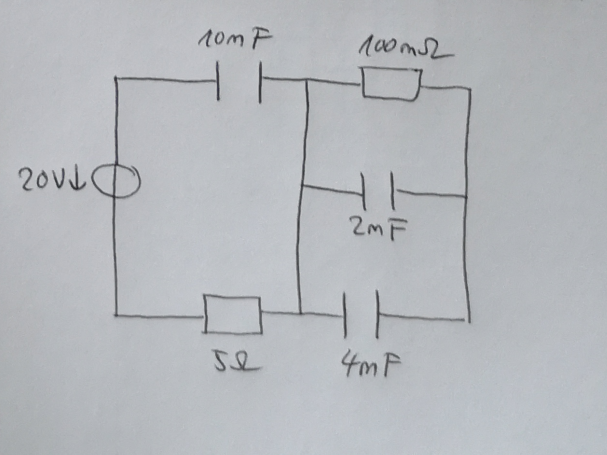 10mF
100mΩ
20V↓
2mF
5Ω
4mF